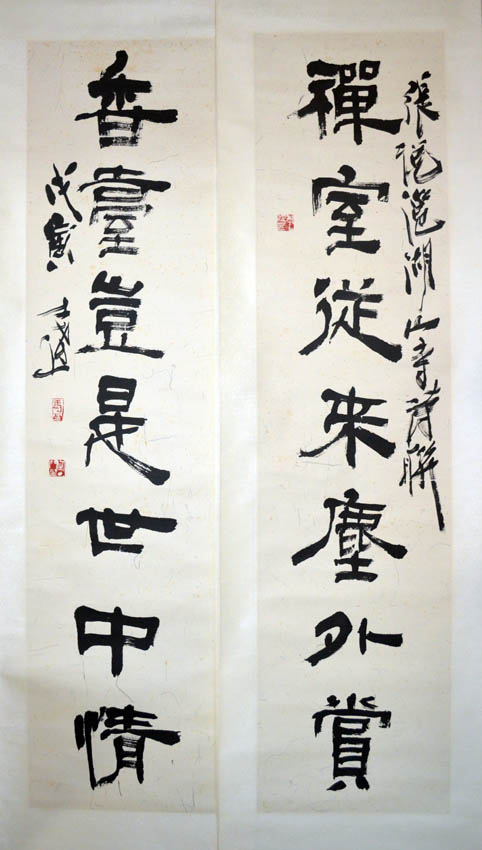 張說㴩湖山寺詩聯
禪室從來塵外賞
香臺豈是世中情
戊寅